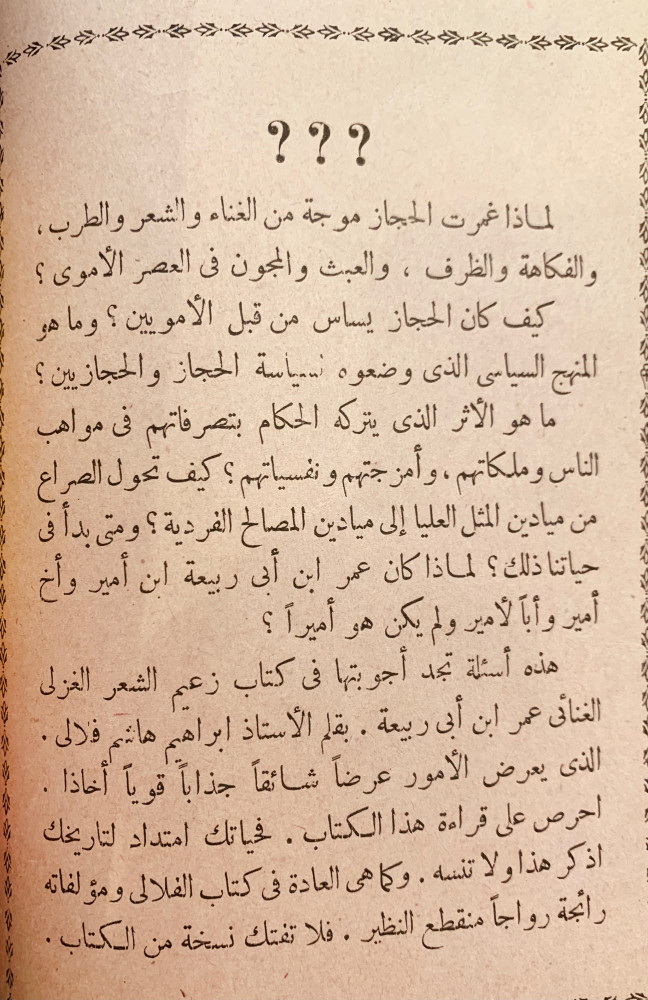 ؟ ؟ ؟
لماذا غمرت الحجاز موجة من الغناء والشعر والطرب،
والفكاهة والظرف ، والعبث والمجون فى العصر الأموى ؟
كيف كان الحجاز يساس من قبل الأمويين ؟ وما هو
المنهج السياسى الذى وضعوه لسياسة الحجاز والحجازيين ؟
ما هو الأثر الذى يتركه الحكام بتصرفاتهم فى مواهب
الناس وملكاتهم ، وأمزجتهم ونفسياتهم ؟ كيف تحول الصراع
من ميادين المثل العليا إلى ميادين المصالح الفردية ؟ ومتى بدأ فى
حياتنا ذلك ؟ لماذا كان عمر ابن أبى ربيعة ابن أمير وأخ
أمير وأباً لأمير ولم يكن هو أميراً ؟
هذه أسئلة تجد أجوبتها فى كتاب زعيم الشعر الغزلى
الغنائى عمر ابن أبى ربيعة . بقلم الأستاذ ابراهيم هاشم فلالى .
الذى يعرض الأمور عرضاً شائقاً جذاباً قوياً أخاذا .
احرص على قراءة هذا الكتاب . فحياتك امتداد لتاريخك
اذكر هذا ولا تنسه . وكما هى العادة فى كتاب الفلالى ومؤلفاته
رائجة رواجاً منقطع النظير . فلا تفتك نسخة من الكتاب .